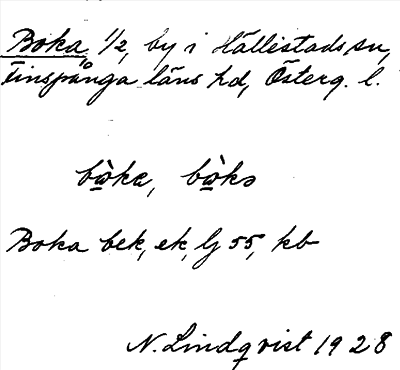 Boka 1/2, by i Hällestads sn,
Finspånga läns hd, Österg. l.
bòka, bòks
Boka bek, ek, lj 55, kb
N. Lindqvist 1928